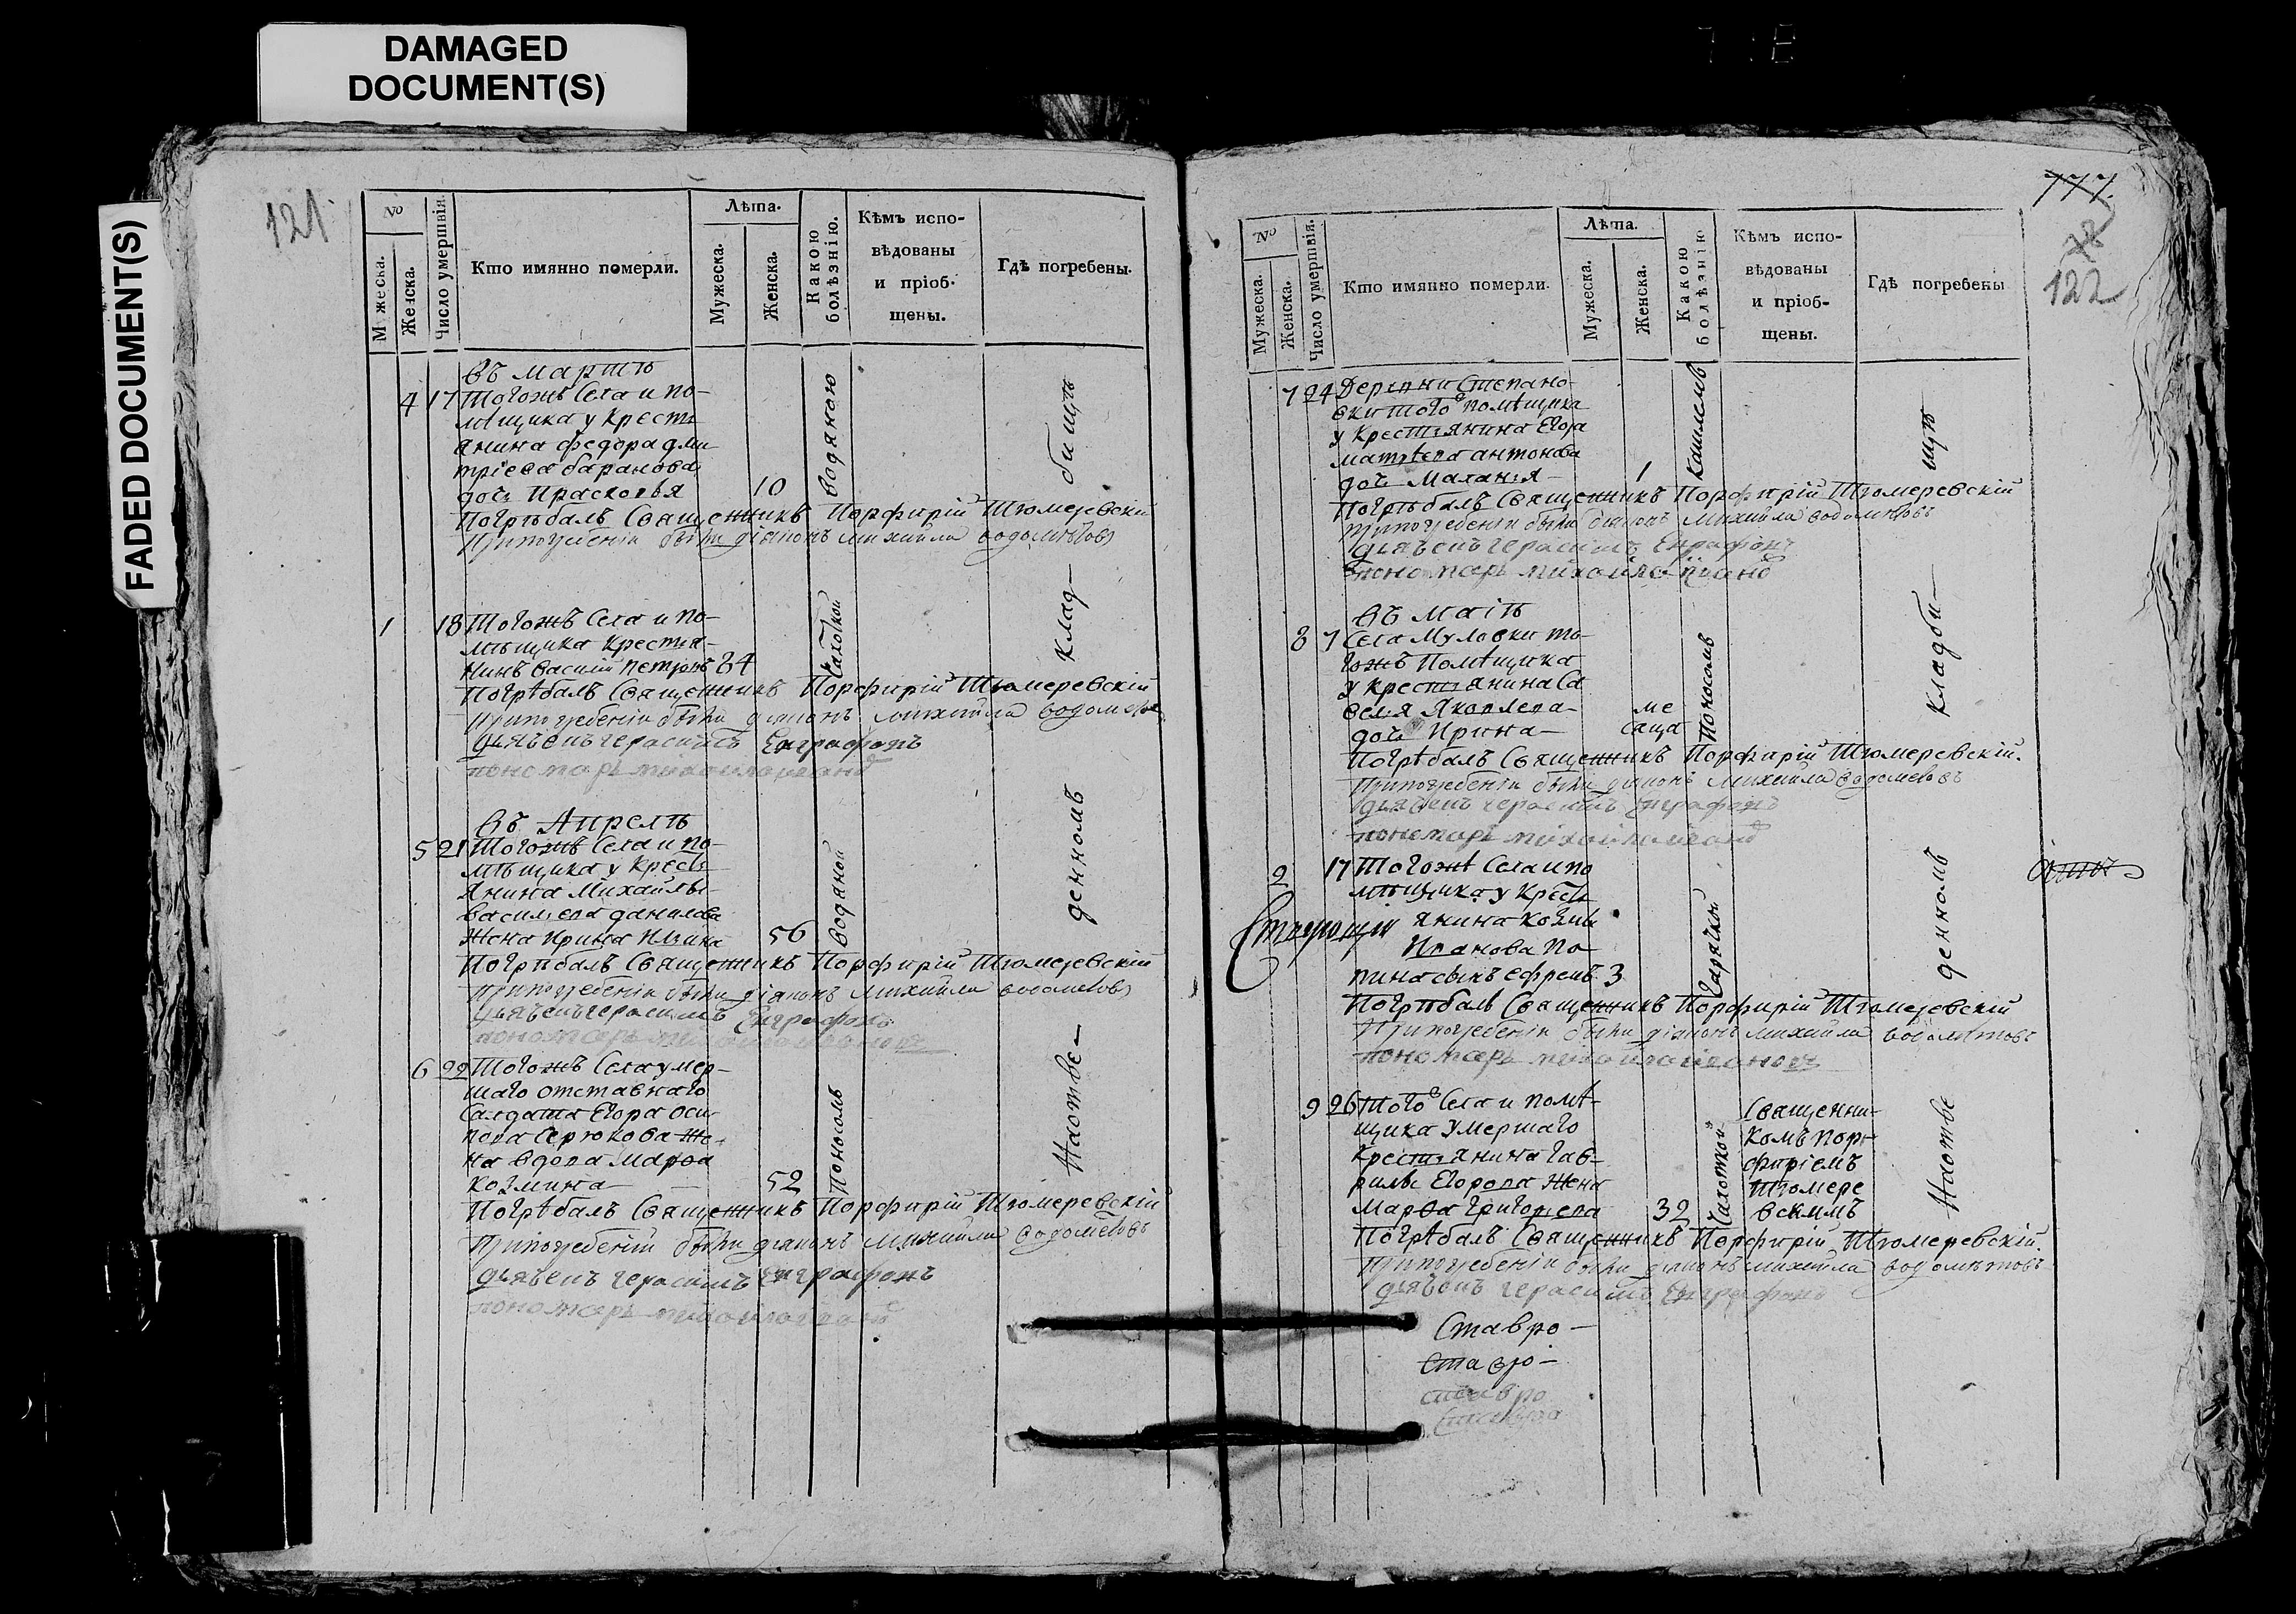 DAMAGED
DOCUMENT(S)
FADED DOCUMENT(S)
121
№
М жеска.
Женска.
Число умершвія.
Кто имянно померли.
Лѣта.
Мужеска.
Женска.
Какою
болѣзнію.
Кѣмъ испо-
вѣдованы
и пріоб-
щены.
Гдѣ погребены.
въ мартѣ
4 17 Тогожъ Села и по-
мѣщика у крестъ
янина федора дми
тріева баранова
дочь Прасковья 10 водяною
Погрѣбалъ Священникъ Порфирій Тюмеревскій
При погребеніи были діяконъ михаила водолѣтовъ
1 18 Тогожъ Села и по-
мѣщика крестья-
нинъ василій петровъ 84 Чахоткой
Погрѣбалъ Священникъ Порфирій Тюмеревскій
При погребеніи были діяконъ михаила
дьячекъ герасимъ Евграфовъ
пономарь михаило ивановъ
въ Апрелѣ
5 21 Тогожъ Села и по-
мѣщика у кресть
янина Михайлы
васильева данилова
жена Ирина 56 водяной
Погрѣбалъ Священникъ Порфирій Тюмеревскій
При погребеніи были діяконъ михаила
дьячекъ герасимъ Евграфовъ
пономарь михаило ивановъ
6 22 Тогожъ Села умер-
шаго отставнаго
Салдата Егора оси
пова Серюкова же-
на вдова марѳа
козмина 52 Поносомъ
Погрѣбалъ Священникъ Порфирій Тюмеревскій
При погребеніи были діяконъ михаила
дьячекъ герасимъ Евграфовъ
пономарь михаило ивановъ
На отве-
денномъ
клад-
бищѣ
777
78
122
№
Мужеска.
Женска.
Число умершвія.
Кто имянно померли.
Лѣта.
Мужеска.
Женска.
Какою
болѣзнію
Кѣмъ испо-
вѣдованы
и пріоб-
щены.
Гдѣ погребены
7 24 Деревни Степано-
вки того помѣщика
у крестьянина Егора
матвева антонова
дочь Маланья 1 кашлемъ
Погрѣбалъ Священникъ Порфирій Тюмеревскій
При погребеніи были діяконъ михаила
дьячекъ герасимъ Евграфовъ
пономарь михаило ивано
въ маіѣ
8 7 Села Муловки то-
гожъ Помѣщика
у крестьянина Са
велья Яковлева
дочь Ирина ме
саца Поносомъ
Погрѣбалъ Священникъ Порфирій Тюмеревскій.
При погребеніи были діяконъ михаила
дьячекъ герасимъ Евграфовъ
пономарь михаило ивановъ
2 17 Тогожъ Села и по
мѣщика у кресть
янина козмы
Иванова По
пина сынъ ефремъ 3 Горячкой
Погрѣбалъ Священникъ Порфирій Тюмеревскій
При погребеніи были діяконъ михаила
пономарь михаило ивановъ
9 26 того Села и помѣ-
щика умершаго
крестьянина гав-
рилы Егорова жена
Марѳа григорьева 32 Чахоткой
Священни-
комъ пор-
фиріемъ
Тюмере
вскимъ
Погрѣбалъ Священникъ Порфирій Тюмеревскій.
При погребеніи были діяконъ михаила
дьячекъ герасимъ Евграфовъ
На отве
денномъ
кладби-
щѣ
Ставро-
Ставро-
ставро